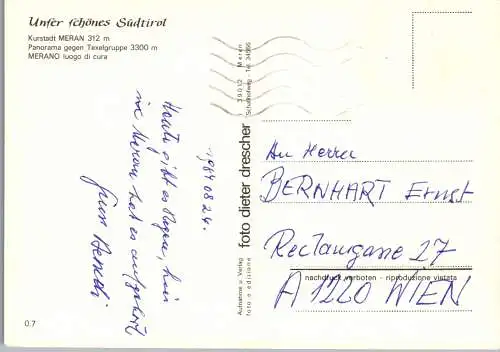 Unser schönes Südtirol
Kurstadt MERAN 312 m
Panorama gegen Texelgruppe 3300 m
MERANO luogo di cura
1984 08 24.
Heute gibt es Regen, hier
in Meran hat es aufgehört
foto dieter drescher
39012 Meran
Aufnahme u. Verlag
foto e edizione
An Herrn
BERNHART Ernst
Rectaurgasse 27
nachdruck verboten - riproduzione vietata
A 1220 WIEN
0.7